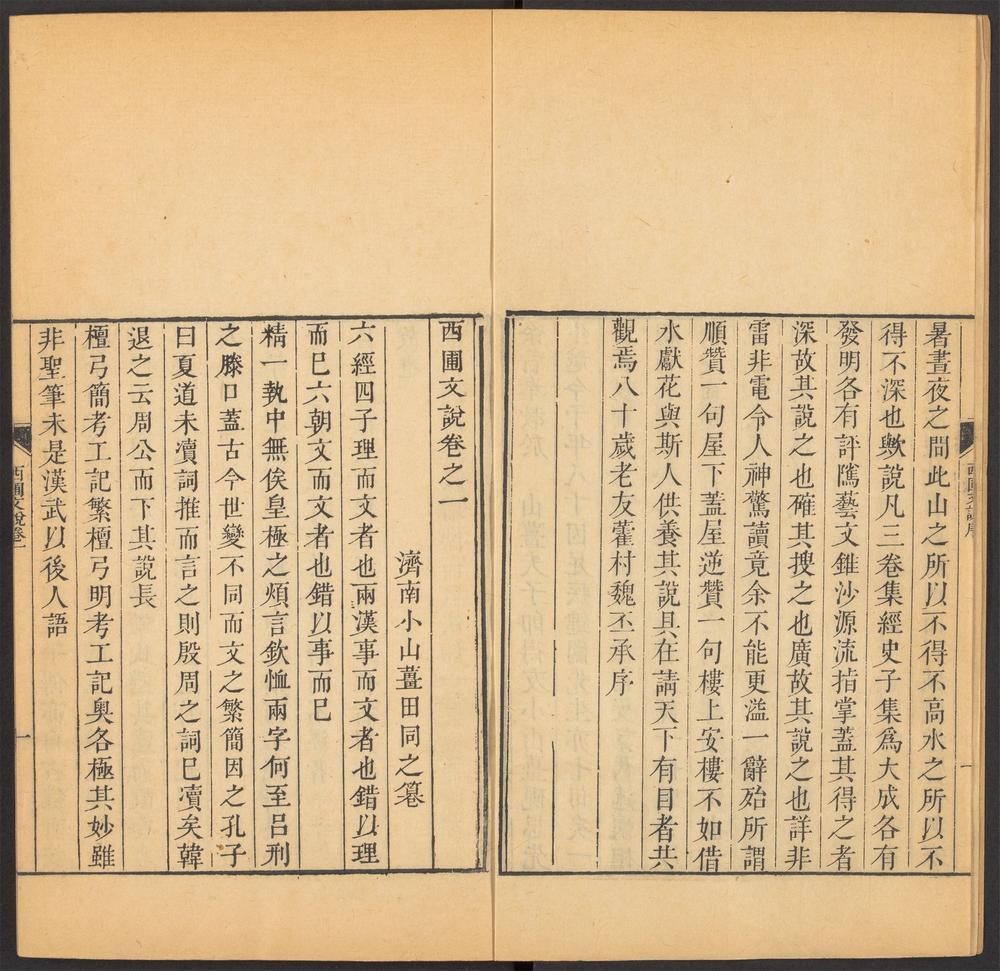 暑晝夜之間此山之所以不得不高水之所以不
得不深也歟說凡三卷集經史子集爲大成各有
發明各有評隲藝文錐沙源流指掌蓋其得之者
深故其說之也確其搜之也廣故其說之也詳非
雷非電令人神驚讀竟余不能更溢一辭殆所謂
順贊一句屋下蓋屋逆贊一句樓上安樓不如借
水獻花與斯人供養其說具在請天下有目者共
觀焉八十歲老友藿村魏丕承序
西圃文說序
一
西圃文說卷之一
濟南小山薑田同之纂
六經四子理而文者也兩漢事而文者也錯以理
而已六朝文而文者也錯以事而已
精一執中無俟皇極之煩言欽恤兩字何至呂刑
之滕口蓋古今世變不同而文之繁簡因之孔子
曰夏道未凟詞推而言之則殷周之詞巳凟矣韓
退之云周公而下其說長
檀弓簡考工記繁檀弓明考工記奧各極其妙雖
非聖筆未是漢武以後人語
西圃文說卷一
一